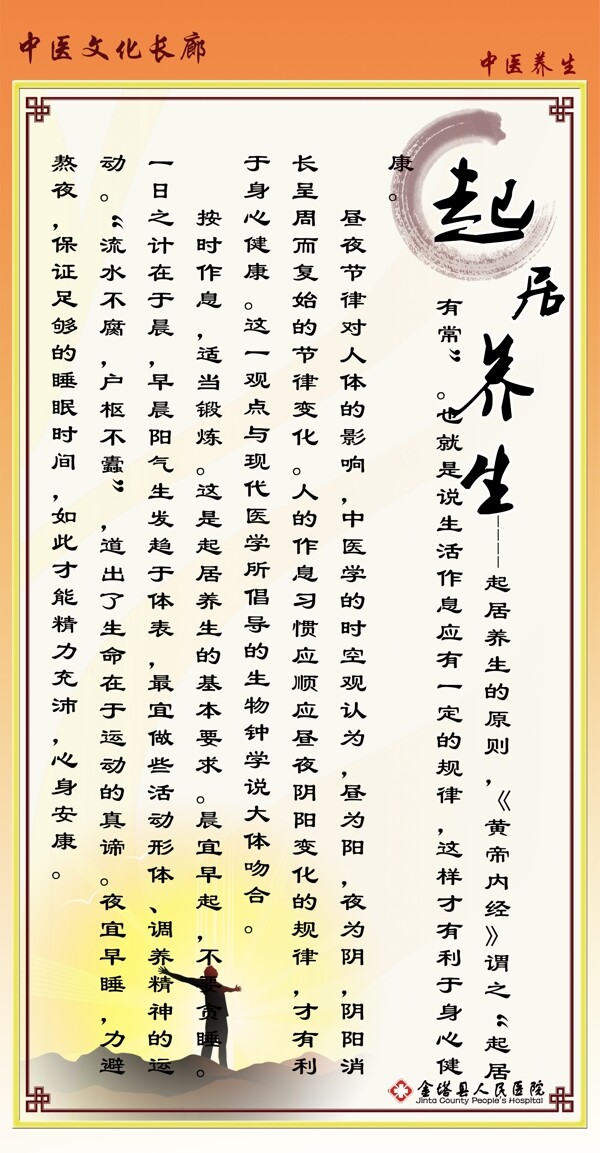 中医文化长廊
中医养生
起居养生
————起居养生的原则，《黄帝内经》谓之“起居
有常”。也就是说生活作息应有一定的规律，这样才有利于身心健
康。
昼夜节律对人体的影响，中医学的时空观认为，昼为阳，夜为阴，阴阳消
长呈周而复始的节律变化。人的作息习惯应顺应昼夜阴阳变化的规律，才有利
于身心健康。这一观点与现代医学所倡导的生物钟学说大体吻合。
按时作息，适当锻炼。这是起居养生的基本要求。晨宜早起，不要贪睡。
一日之计在于晨，早晨阳气生发趋于体表，最宜做些活动形体、调养精神的运
动。“流水不腐，户枢不蠹”，道出了生命在于运动的真谛。夜宜早睡，力避
熬夜，保证足够的睡眠时间，如此才能精力充沛，心身安康。
金塔县人民医院
Jinta County People's Hospital